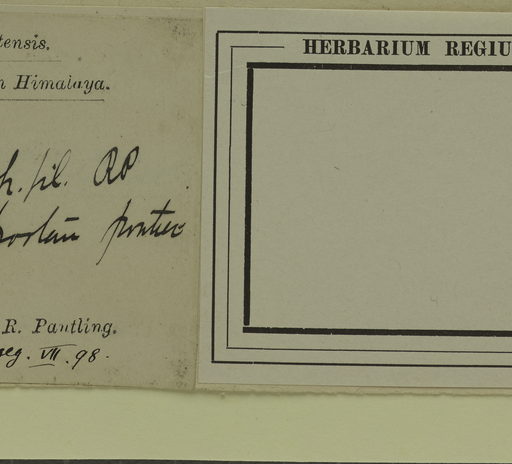 tensis.
Himalaya.
h. fil. RP
frontier
R. Pantling.
leg. VII. 98.
HERBARIUM REGIU